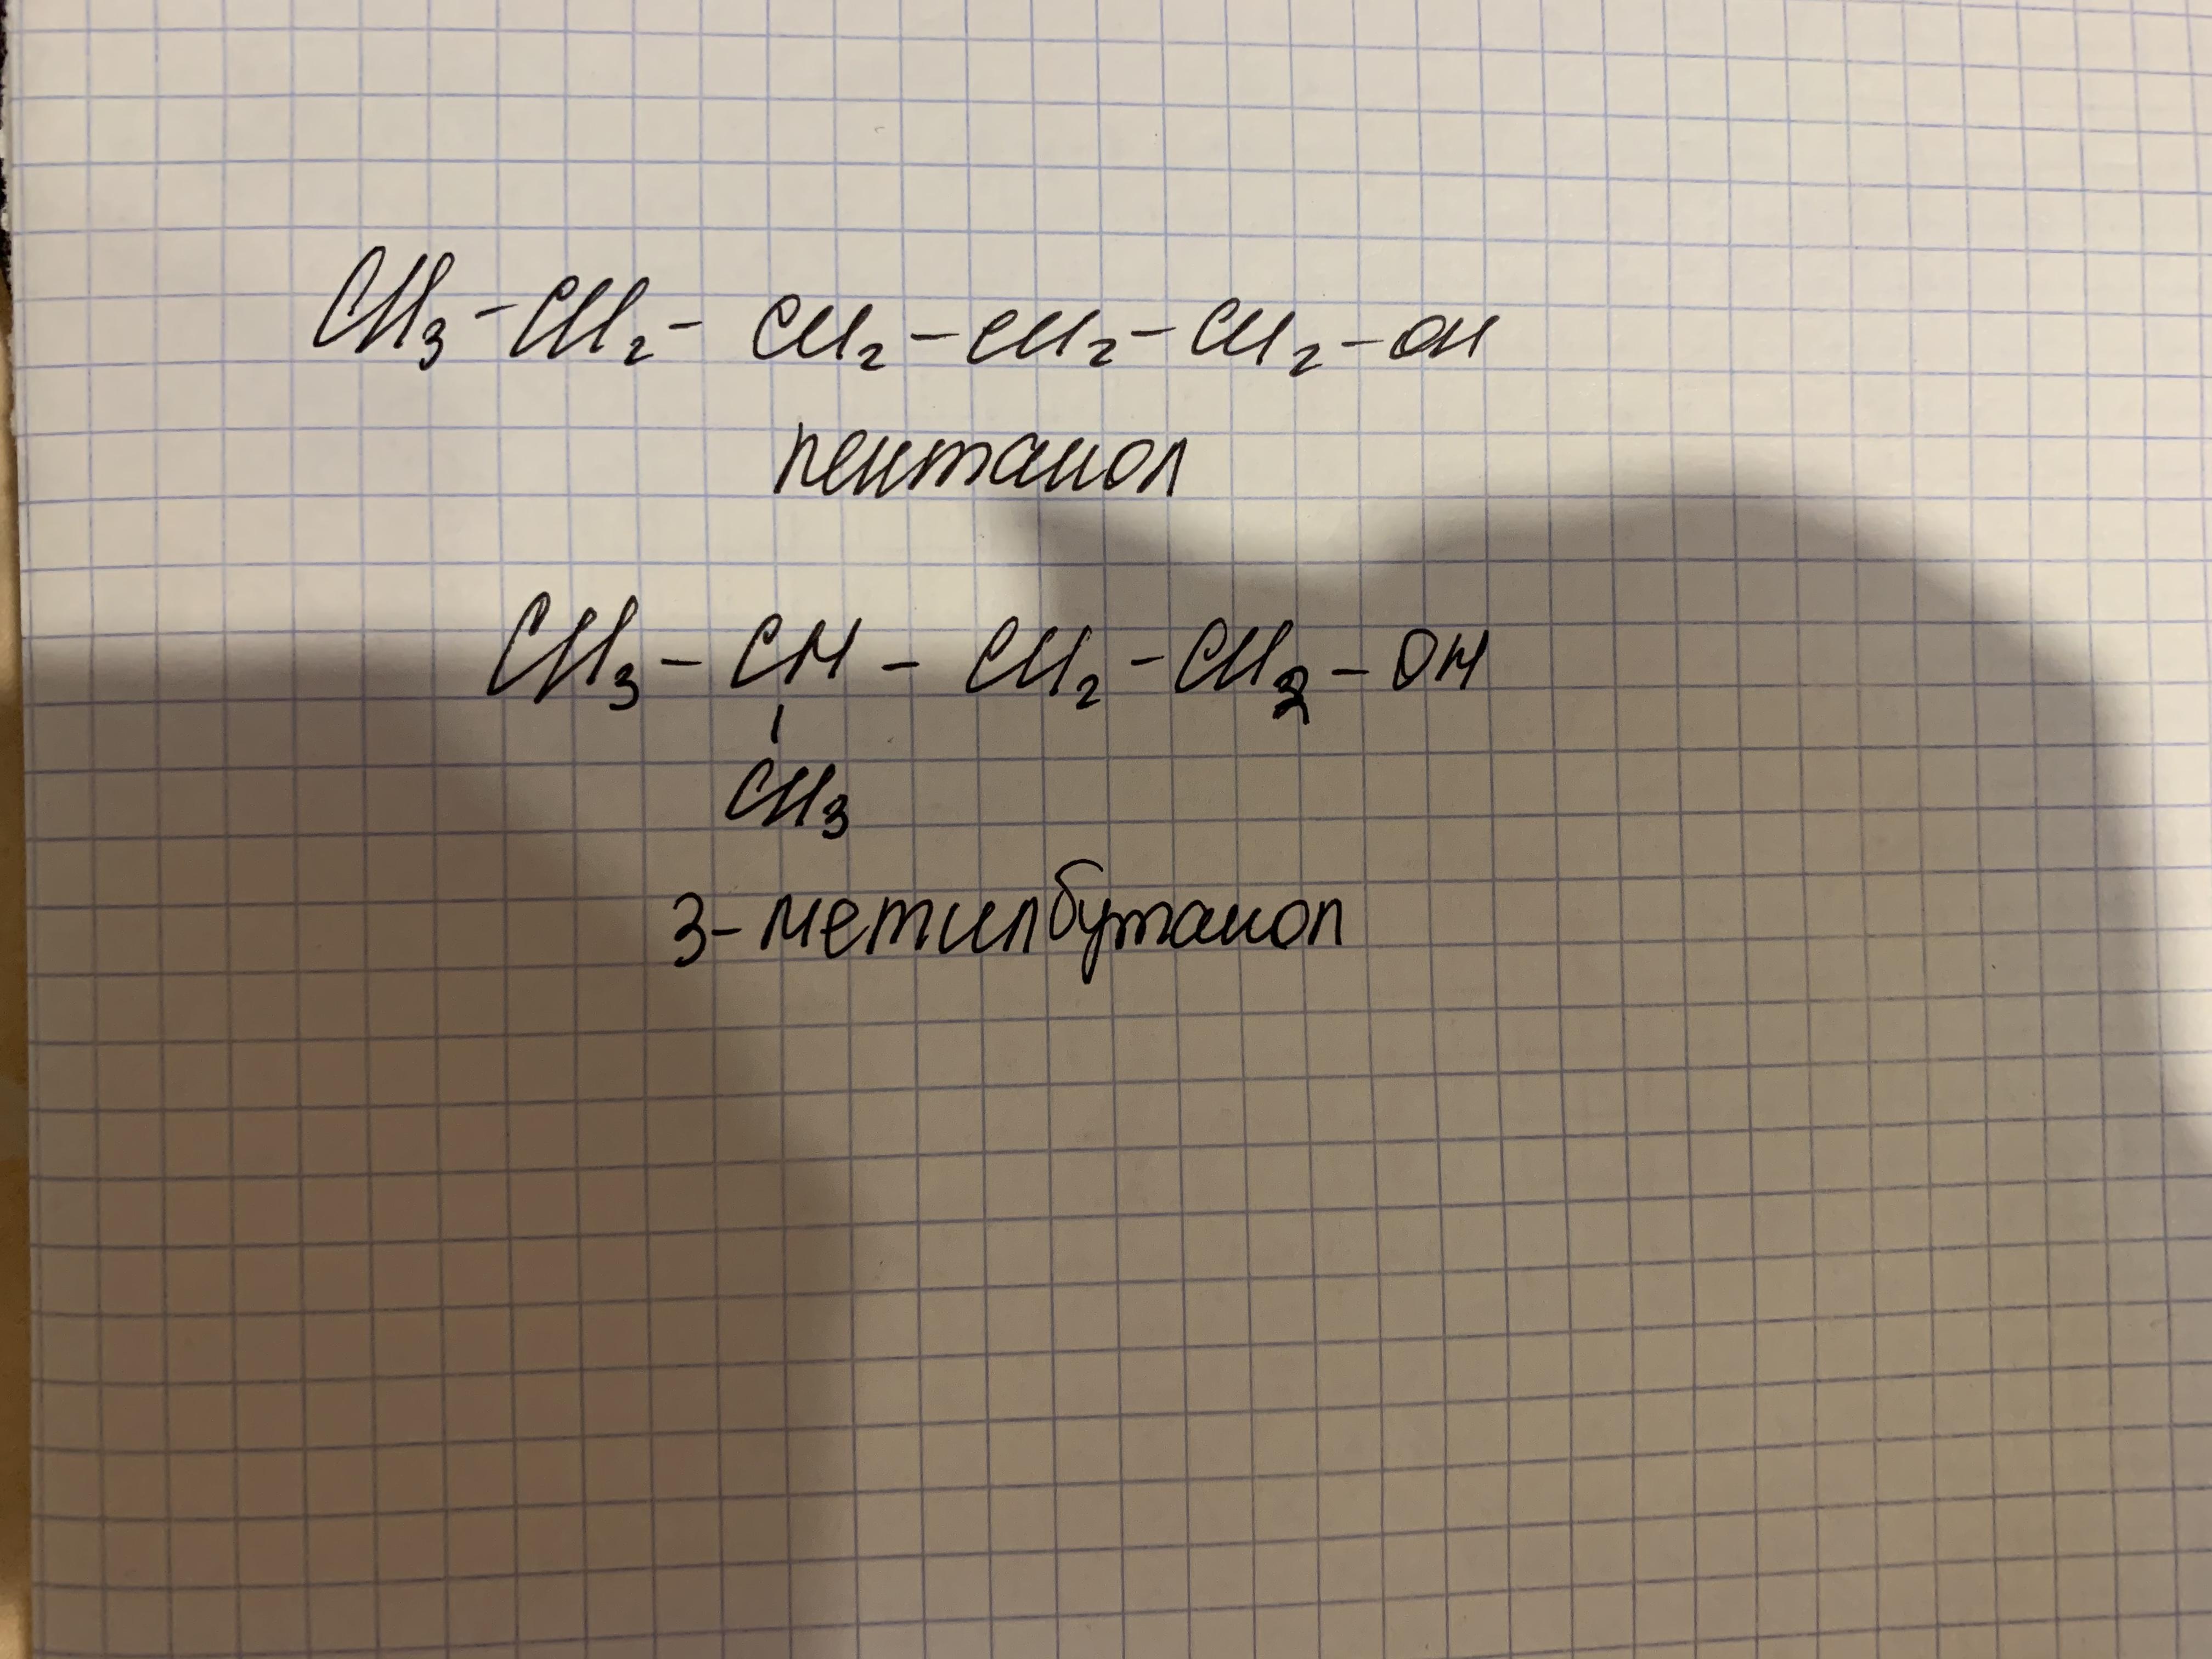 CH₃-CH₂-CH₂-CH₂-CH₂-OH
пентанол
CH₃-CH-CH₂-CH₂-OH
CH₃
3-метилбутанол